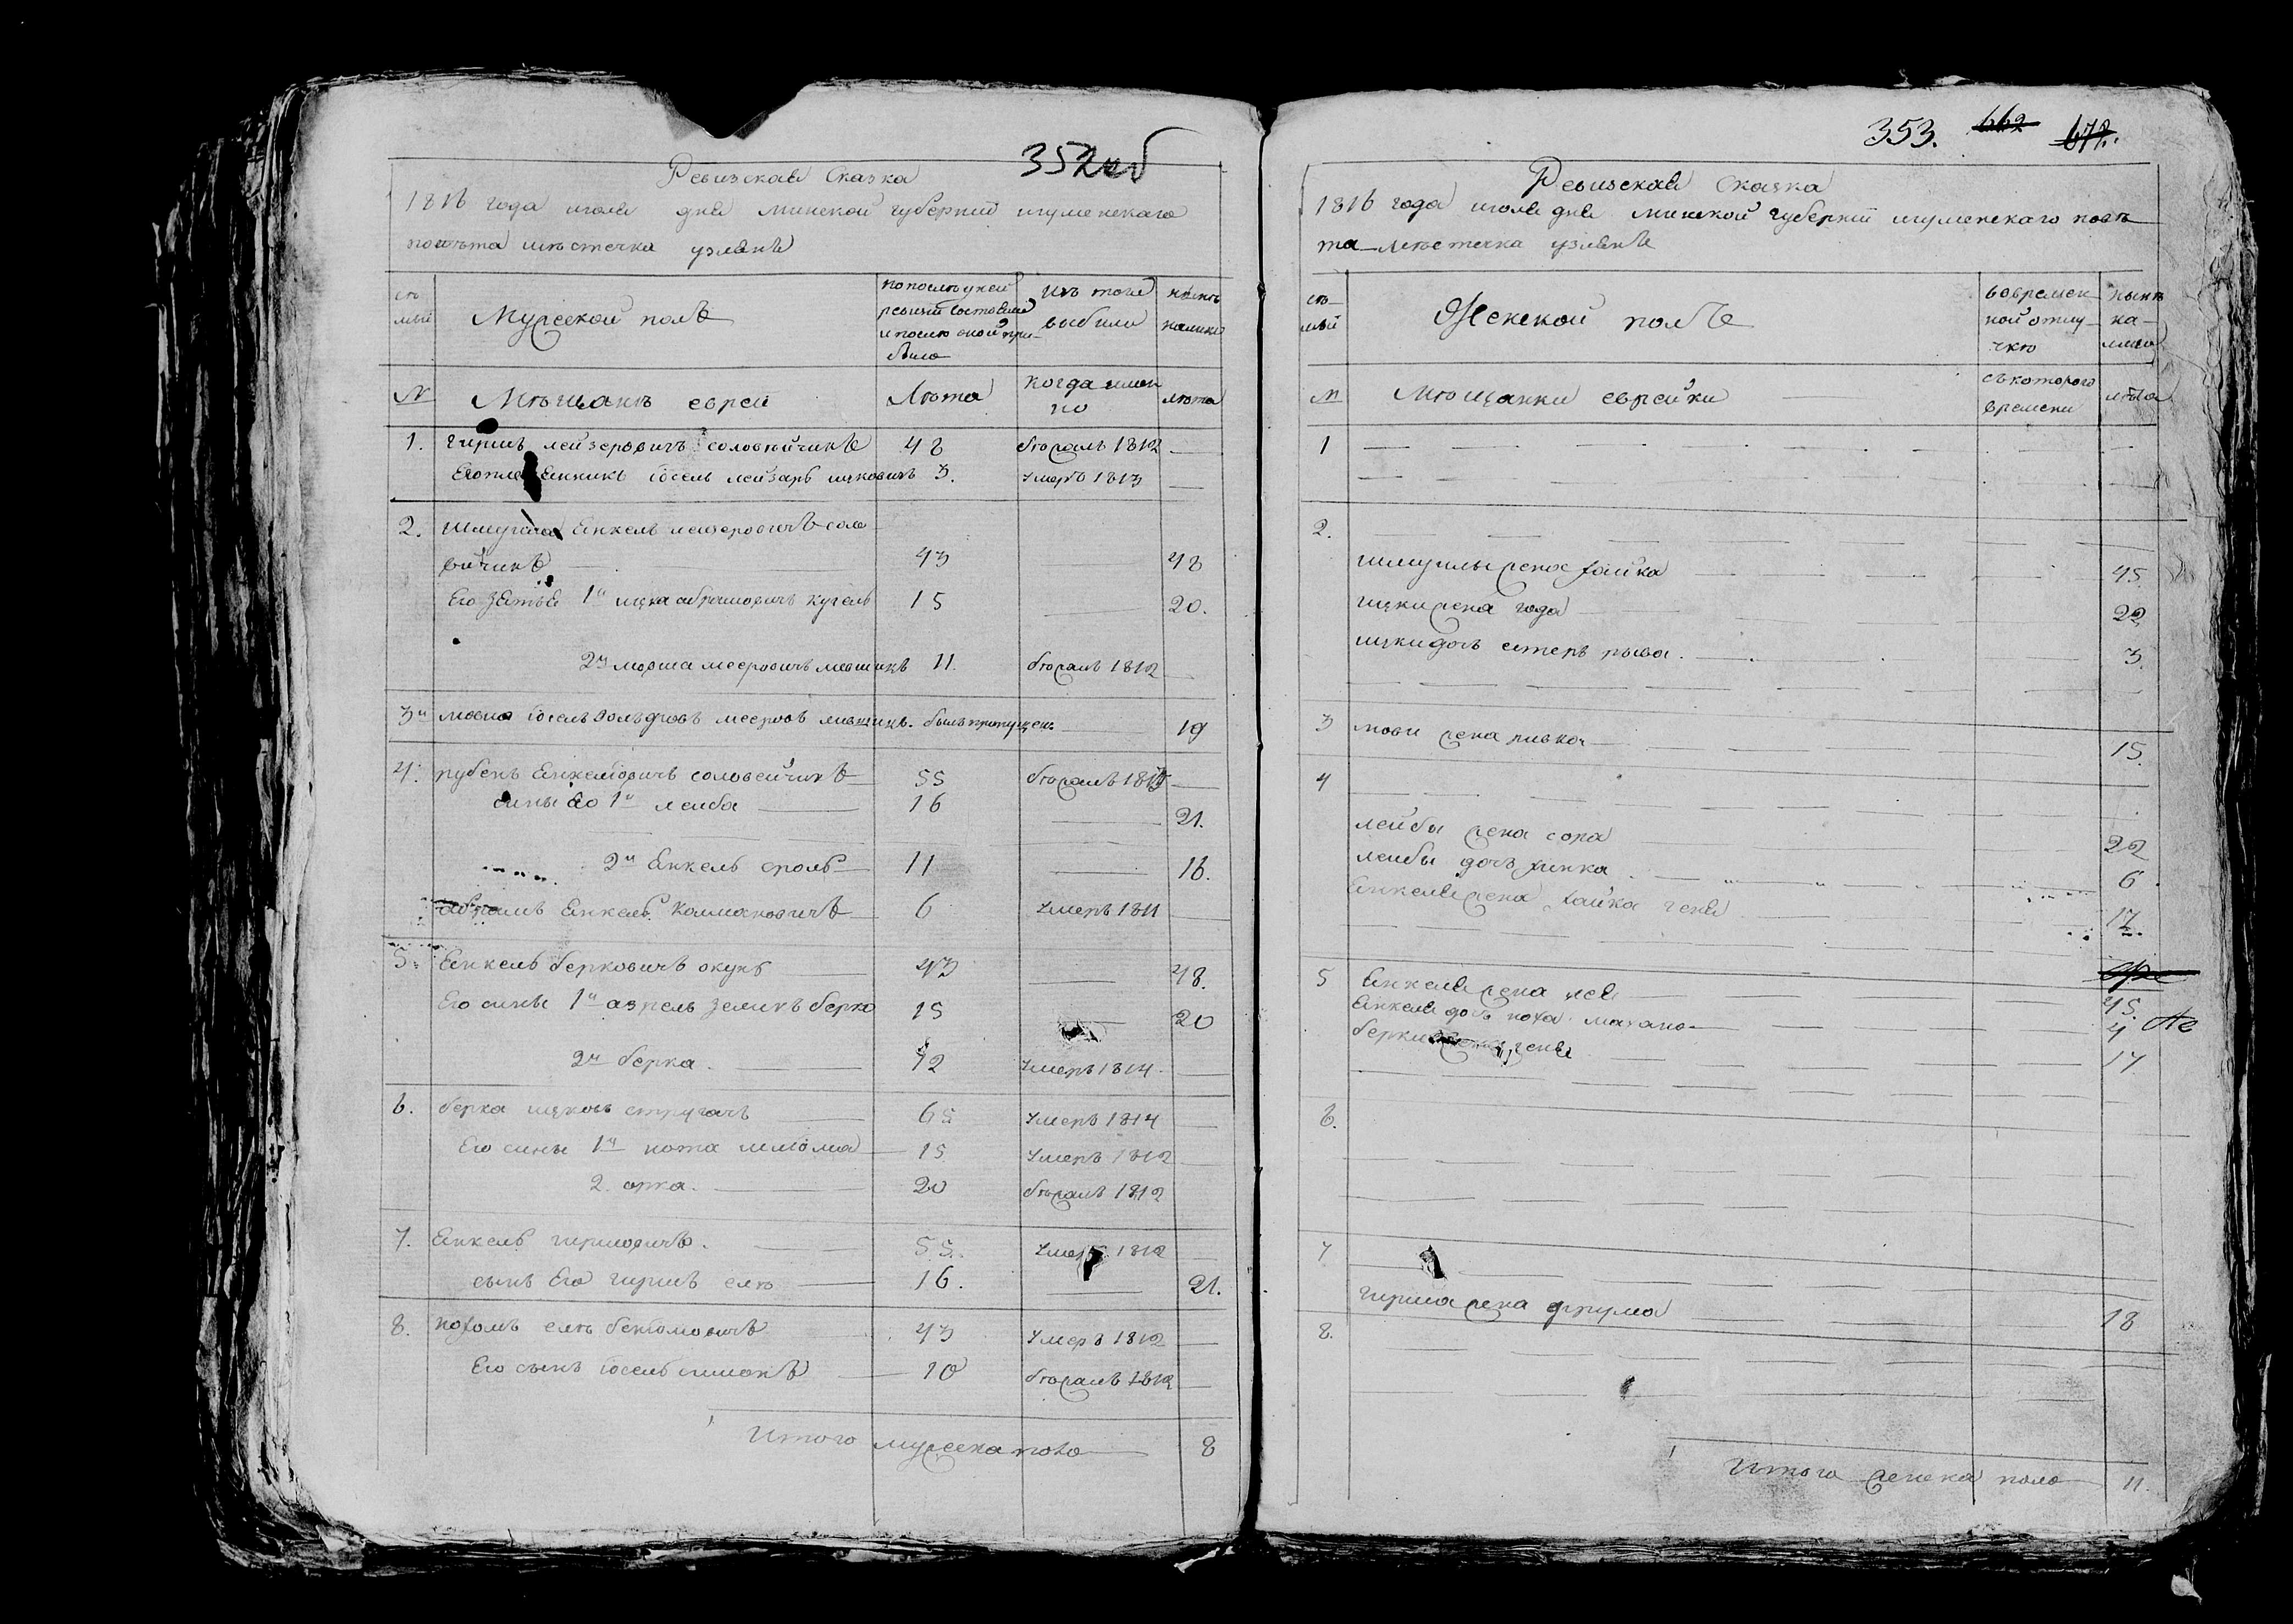 352 об
Ревизская Сказка
1816 года июля дня минской губернии игуменскаго
повѣта мѣстечка узлянъ
се
мьи
Мужской полъ
по последней
ревизіи состояло
и после оной при-
было
изъ того
выбыли
нынѣ
налицо
№
Мѣщанъ евреи
Лѣта
когда имен
но
лѣта
1. гиршъ лейзеровичъ соловейчикъ 48 бѣжалъ 1812 —
Его племянникъ іосель лейзаръ ицковичъ 3. умеръ 1813 —
2. Шмуйла Енкель лейзеровичъ соло
вйчикъ — 43 — 48
Его зятья 1й ицка абрамовичъ кугель 15 — 20.
2й мовша мееровичъ мовшикъ 11. бѣжалъ 1812 —
3й іосель вольфовъ мееровъ былъ пропущен. — 19
4. рубенъ Енкелювичъ соловейчикъ 55 бѣжалъ —
сыны его 1й лейба — 16 — 21.
2й Енкель сроль — 11 — 16.
абрамъ Енкель калмановичъ — 6 умеръ 1811 —
5. Енкель берковичъ окунь — 43 — 48.
Его сыны 1й азрель зеликъ берко 15 — 20
2й берка. — 12 умеръ 1814 —
6. берка ицковъ стругачъ — 65 умеръ 1814 —
Его сыны 1й нота шліома — 15 умеръ 1812 —
2. орка. — 20 бѣжалъ 1812
7. Енкель гиршовичъ. — 55. умеръ 1812 —
сынъ Его гиршъ еля — 16. — 21.
8. нохомъ еля бенюмовичъ 43 умеръ 1812 —
Его сынъ іосель шимонъ — 10 бѣжалъ 1812 —
Итого мужска пола — 8
353. 662 678.
Ревизская Сказка
1816 года июля дня минской губерніи игуменскаго повѣ
та мѣстечка узлянъ
се—
мьи
Женской полъ
во времен
ной отлу
чкѣ
нынѣ
на—
лицо
№
Мѣщанки еврейки
съ котораго
времени
лѣта
1 — — —
2. — — —
шмуилы жена хайка — 45.
ицки жена года — 22
ицки дочь естеръ рыва. — 3.
3 мови жена ривка — 15.
4 — — —
лейбы жена сора — 22
лейбы дочь хинка. — 6.
Енкеля жена хайка геня — 17.
5 Енкеля жена цевя — 45.
Енкеля дочь ноха махано— 4
берки геня — 17
6. — — —
7 — — —
гирша жена фрума — 18
8. — — —
Итого женска пола 11.